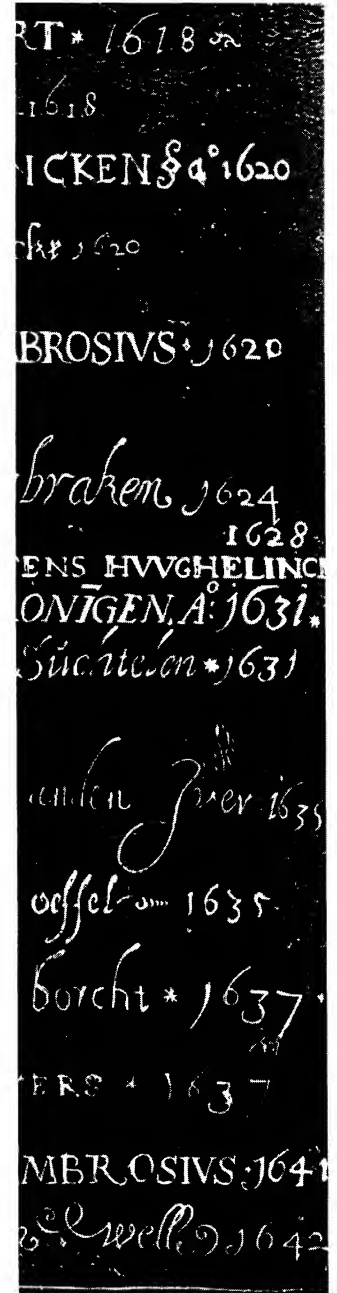 RT * 1618
1618
ICKEN § a° 1620
1620
BROSIVS · 1620
braken 1624
1628
ENS HVVGHELINCK
ONĪGEN, A°: 1631.
Sŭchtelen * 1631
anden 1635
oeffel 1635
borcht * 1637 ·
ERS * 1637
MBROSIVS · 1641
well 1642